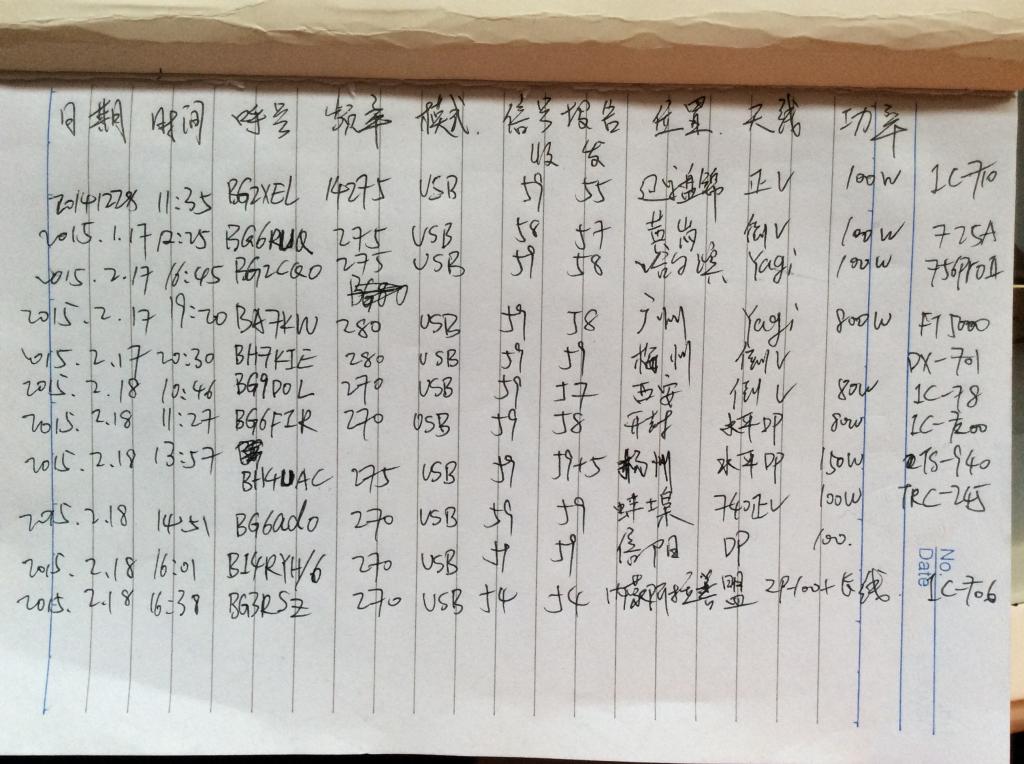 日期 时间 呼号 频率 模式. 信号报告 位置. 天线 功率
收 发
20141228 11:35 BG2XEL 14275 USB 59 55 辽宁盘锦 正V 100W IC-710
2015.1.17 12:25 BG6RUQ 275 USB 58 57 黄岗 倒V 100W 725A
2015.2.17 16:45 BG2CQO 275 USB 59 58 哈尔滨 Yagi 100W 756proII
2015.2.17 19:20 BA7KW 280 USB 59 58 广州 Yagi 800W FT5000
2015.2.17 20:30 BH7KIE 280 USB 59 59 梅州 倒V DX-701
2015.2.18 10:46 BG9DOL 270 USB 59 57 西安 倒V 80W IC-78
2015.2.18 11:27 BG6FIR 270 USB 59 58 开封 水平DP 80W IC-7200
2015.2.18 13:57 BH4UAC 275 USB 59 59+5 扬州 水平DP 150W TS-940
2015.2.18 14:51 BG6ado 270 USB 59 59 蚌埠 740正V 100W TRC-245
2015.2.18 16:01 BI4RYH/6 270 USB 59 59 信阳 DP 100.
2015.2.18 16:38 BG3RSZ 270 USB 54 54 内蒙阿拉善盟 2P100+长线 IC-706
No.
Date